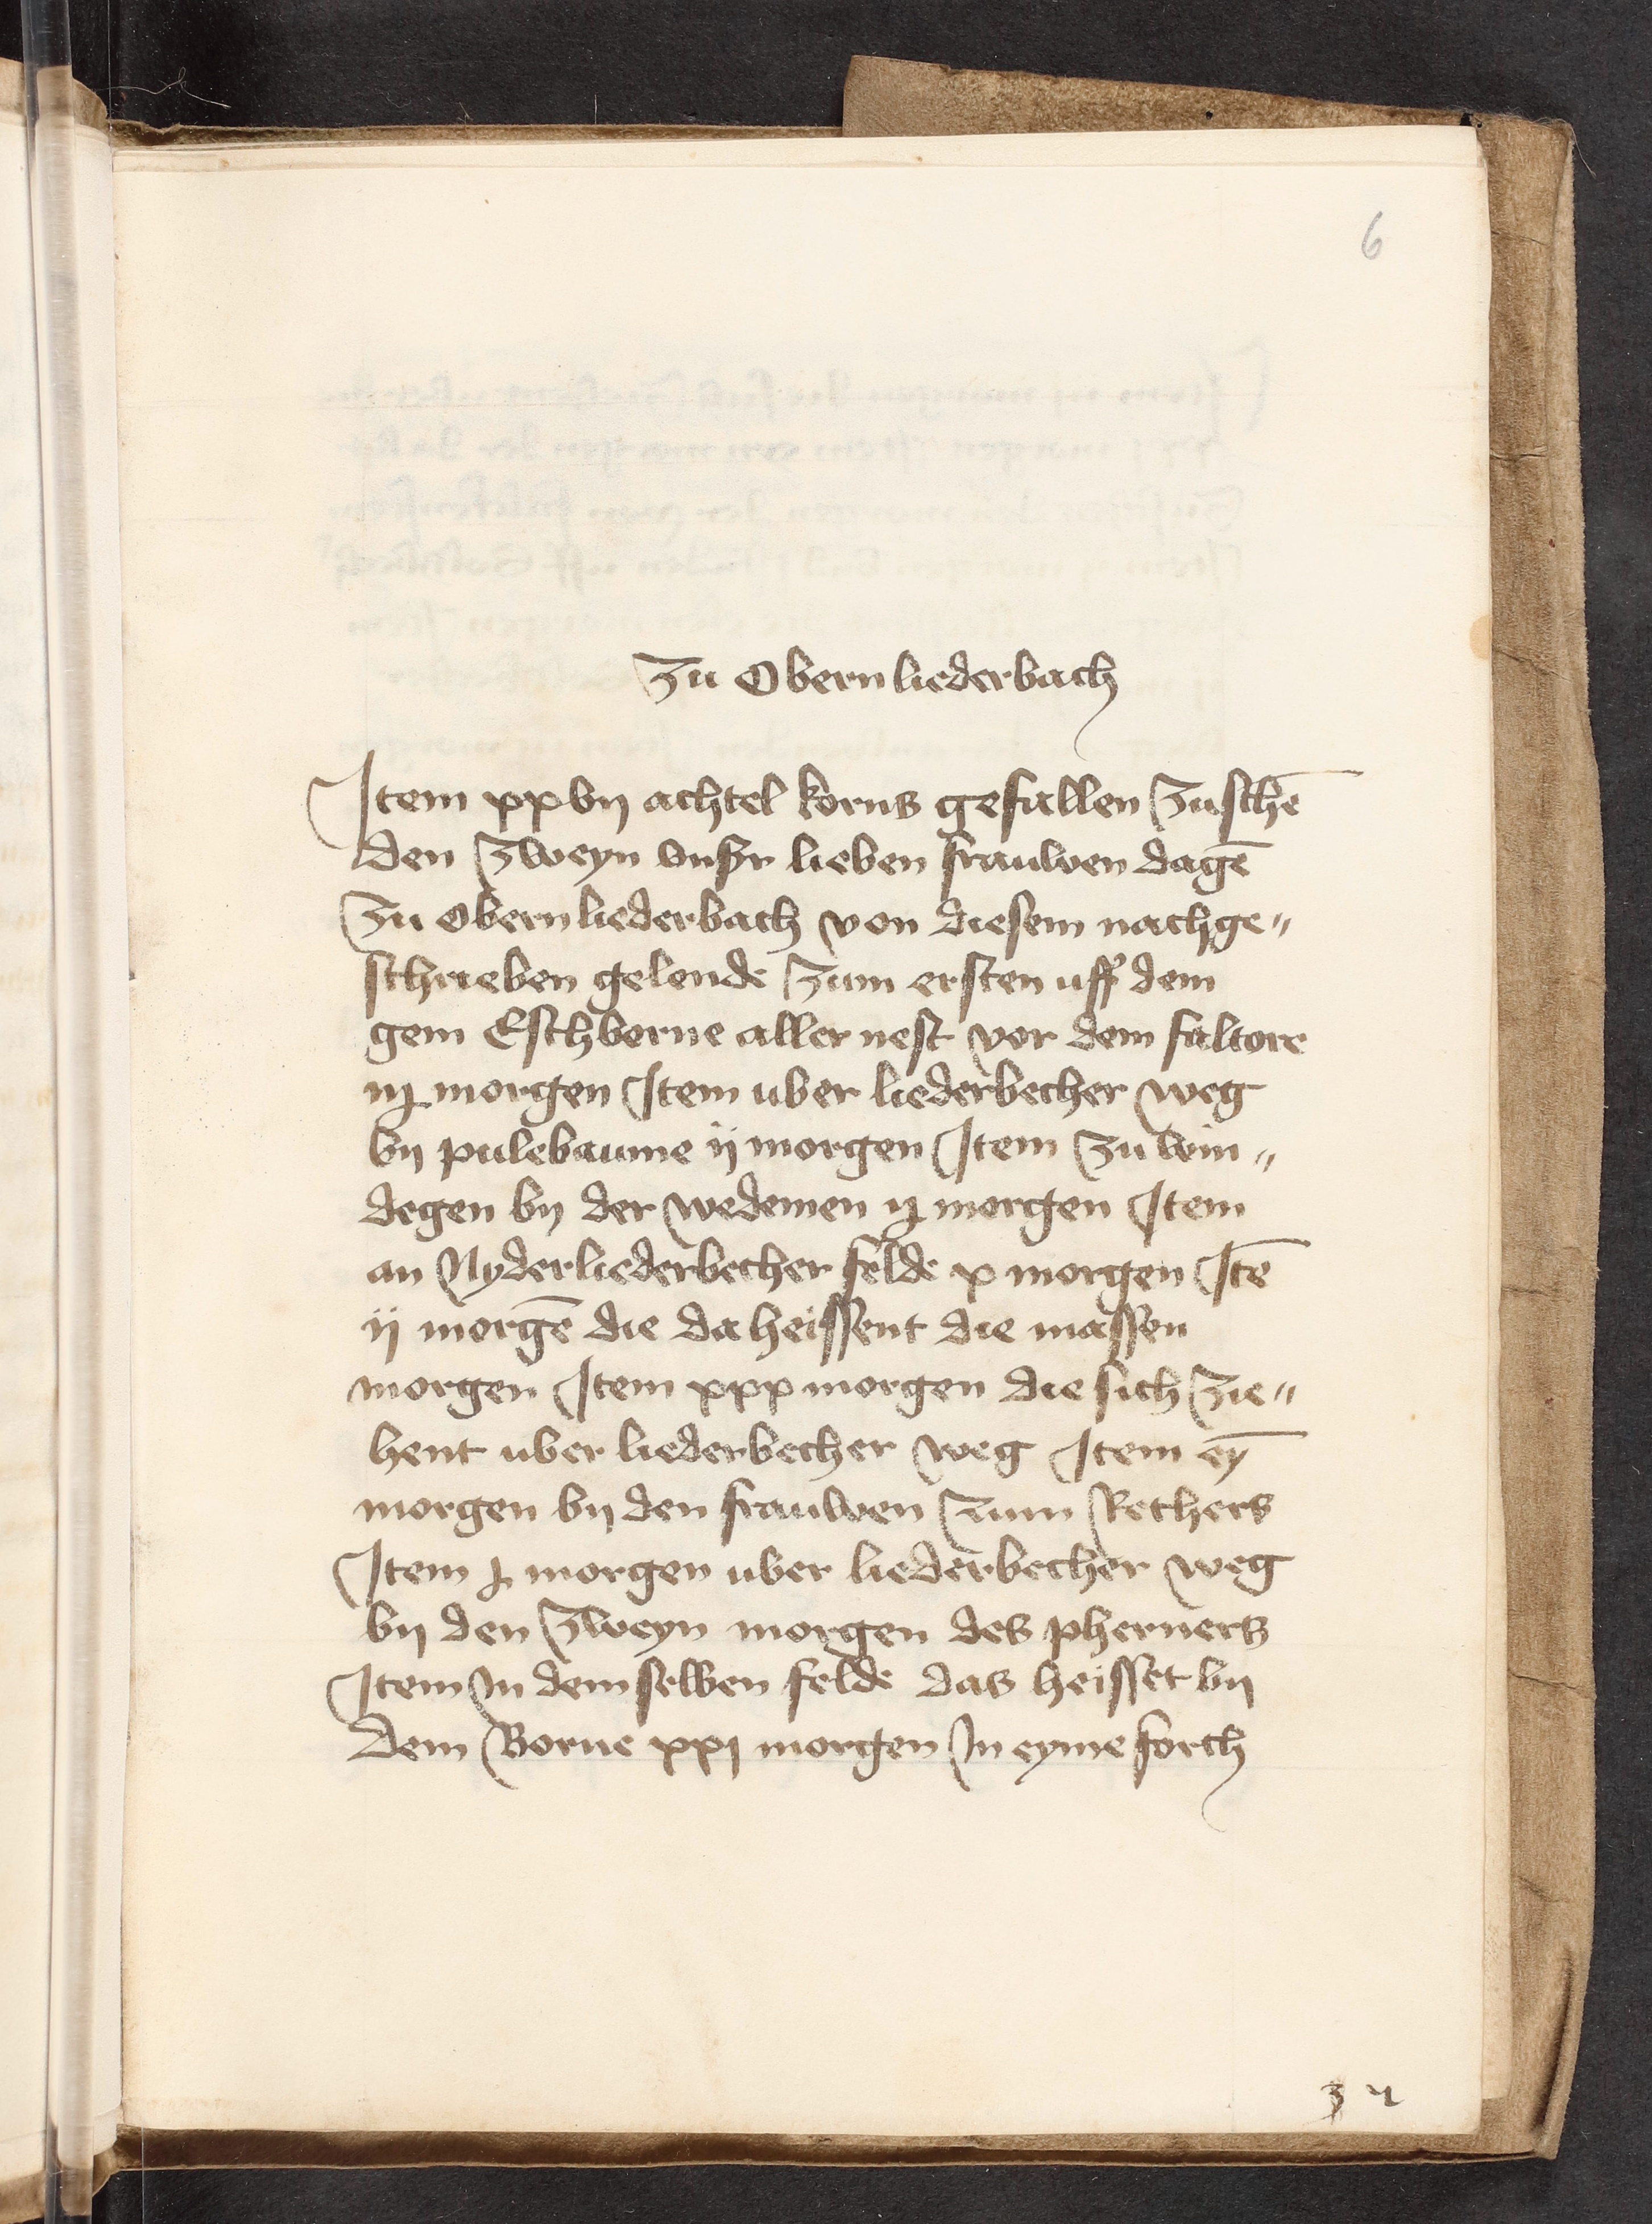 6
Zu Obernliederbach
Item xxvij achtel korns gefallen zuschē
den zweyn vnsṝ lieben frauwen dagē
Zu obernliederbach von diesem nachge„
schrieben gelende zum ersten uff dem
gem Eschborne aller nest vor dem faltore
iij morgen Item uber liederbecher weg
bij pulebaume ij morgen Item zu win„
degen bij der wedemen ij morgen Item
an Nyderliederbecher felde x morgen Itē
ij morgē die da heissent die massen
morgen Item xxx morgen die sich zie„
hent uber liederbecher weg Item eȳ
morgen bij den frauwen zum Rethers
Item j morgen uber liederbecher weg
bij den zweyn morgen des pherners
Item In dem selben felde das heisset bij
dem Borne xxj morgen In eyme forch